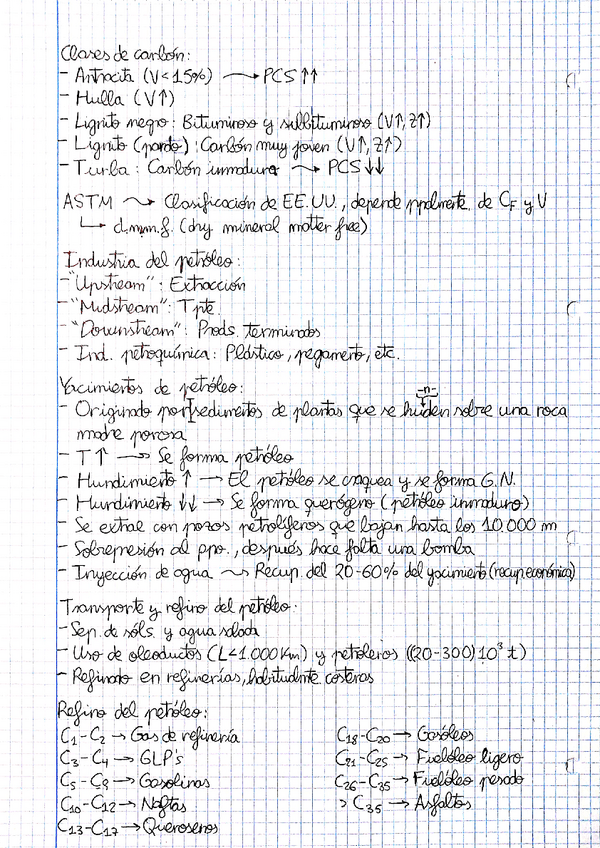 Clases de carbón:
- Antracita (V<15%) → PCS↑↑
- Hulla (V↑)
- Lignito negro: Bituminoso y subbituminoso (V↑, Z↑)
- Lignito (pardo): Carbón muy joven (V↑, Z↑)
- Turba: Carbón inmaduro → PCS↓↓
ASTM → Clasificación de EE.UU., depende ppalmente. de CF y V
↳ d.m.m.f. (dry mineral matter free)
Industria del petróleo:
- "Upstream": Extracción
- "Midstream": Tpte.
- "Downstream": Prods. terminados
- Ind. petroquímica: Plástico, pegamento, etc.
Yacimientos de petróleo:
-n-
- Originado por sedimentos de plantas que se huden sobre una roca
madre porosa
- T↑ → Se forma petróleo
- Hundimiento ↑ → El petróleo se craquea y se forma G.N.
- Hundimiento ↓↓ → Se forma querógeno (petróleo inmaduro)
- Se extrae con pozos petrolíferos que bajan hasta los 10.000 m
- Sobrepresión al ppo., después hace falta una bomba
- Inyección de agua → Recup. del 20-60% del yacimiento (recup. económica)
Transporte y refino del petróleo:
- Sep. de sóls. y agua salada
- Uso de oleoductos (L<1.000 Km) y petroleros ((20-300)10³ t)
- Refinado en refinerías, habitualmte. costeras
Refino del petróleo:
C1-C2 → Gas de refinería
C3-C4 → GLP's
C5-C9 → Gasolinas
C10-C12 → Naftas
C13-C17 → Querosenos
C18-C20 → Gasóleos
C21-C25 → Fuelóleo ligero
C26-C35 → Fuelóleo pesado
> C35 → Asfaltos